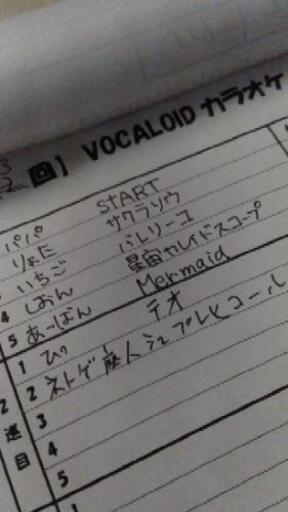 回! VOCALOID カラオケ
パパ START
りぉに サクラリウ
いちご バレリーコ
4 しおん 星宙カレイドスコープ
5 あーばん Mermaid
1 ひり テオ
2 ネトゲ廃人シュプレヒコール
2 3
週 4
目 5
1